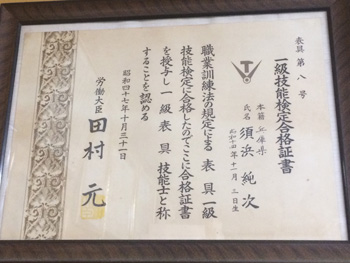 表具 第 八 号
一級技能検定合格証書
本籍 兵庫県
氏名 須浜 純次
昭和十四年十一月 三日生
職業訓練法の規定による 表具 一級
技能検定に合格したのでここに合格証書
を授与し 一級 表具 技能士と称
することを認める
昭和四十七年十月三十一日
労働大臣 田村 元